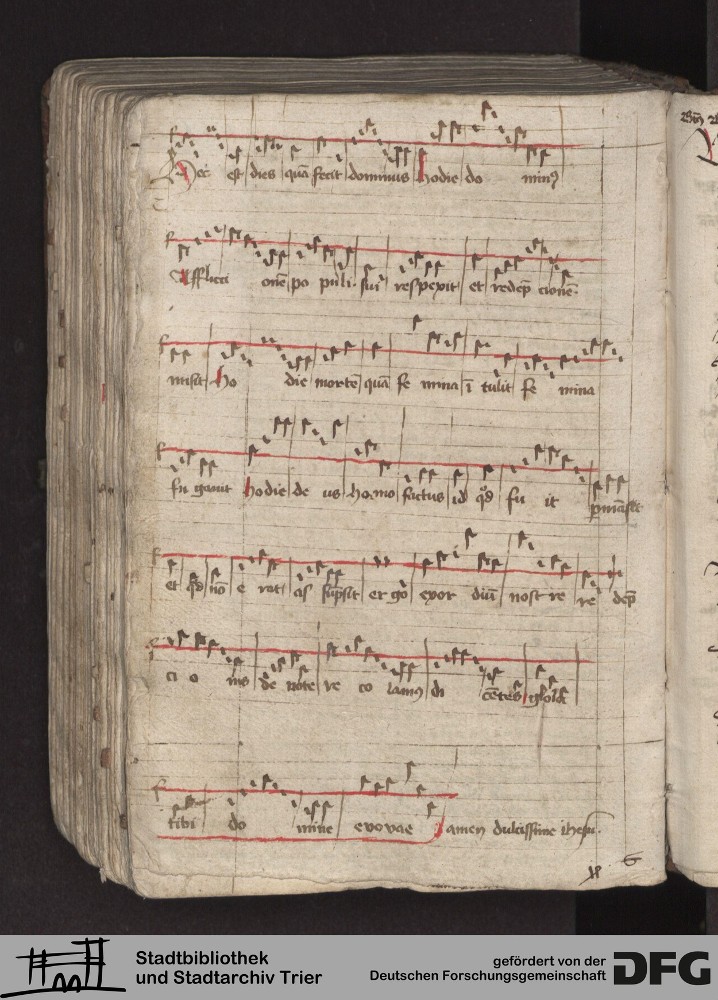 Hec est dies quā fecit dominus hodie do minꝰ
Afflicci onē po puli sui respexit et redēp cionē
misit ho die mortē quā fe mina ī tulit fe mina
fu gavit hodie de us homo factus id qd fu it pmāsit
et qd nō e rat as sūpsit er go exor diū nost re re dēp
ci o nis de vote re co lamꝰ di cētes gloria
tibi do mine evovae amen dulcissime ihesu
Stadtbibliothek
und Stadtarchiv Trier
gefördert von der
Deutschen Forschungsgemeinschaft
DFG